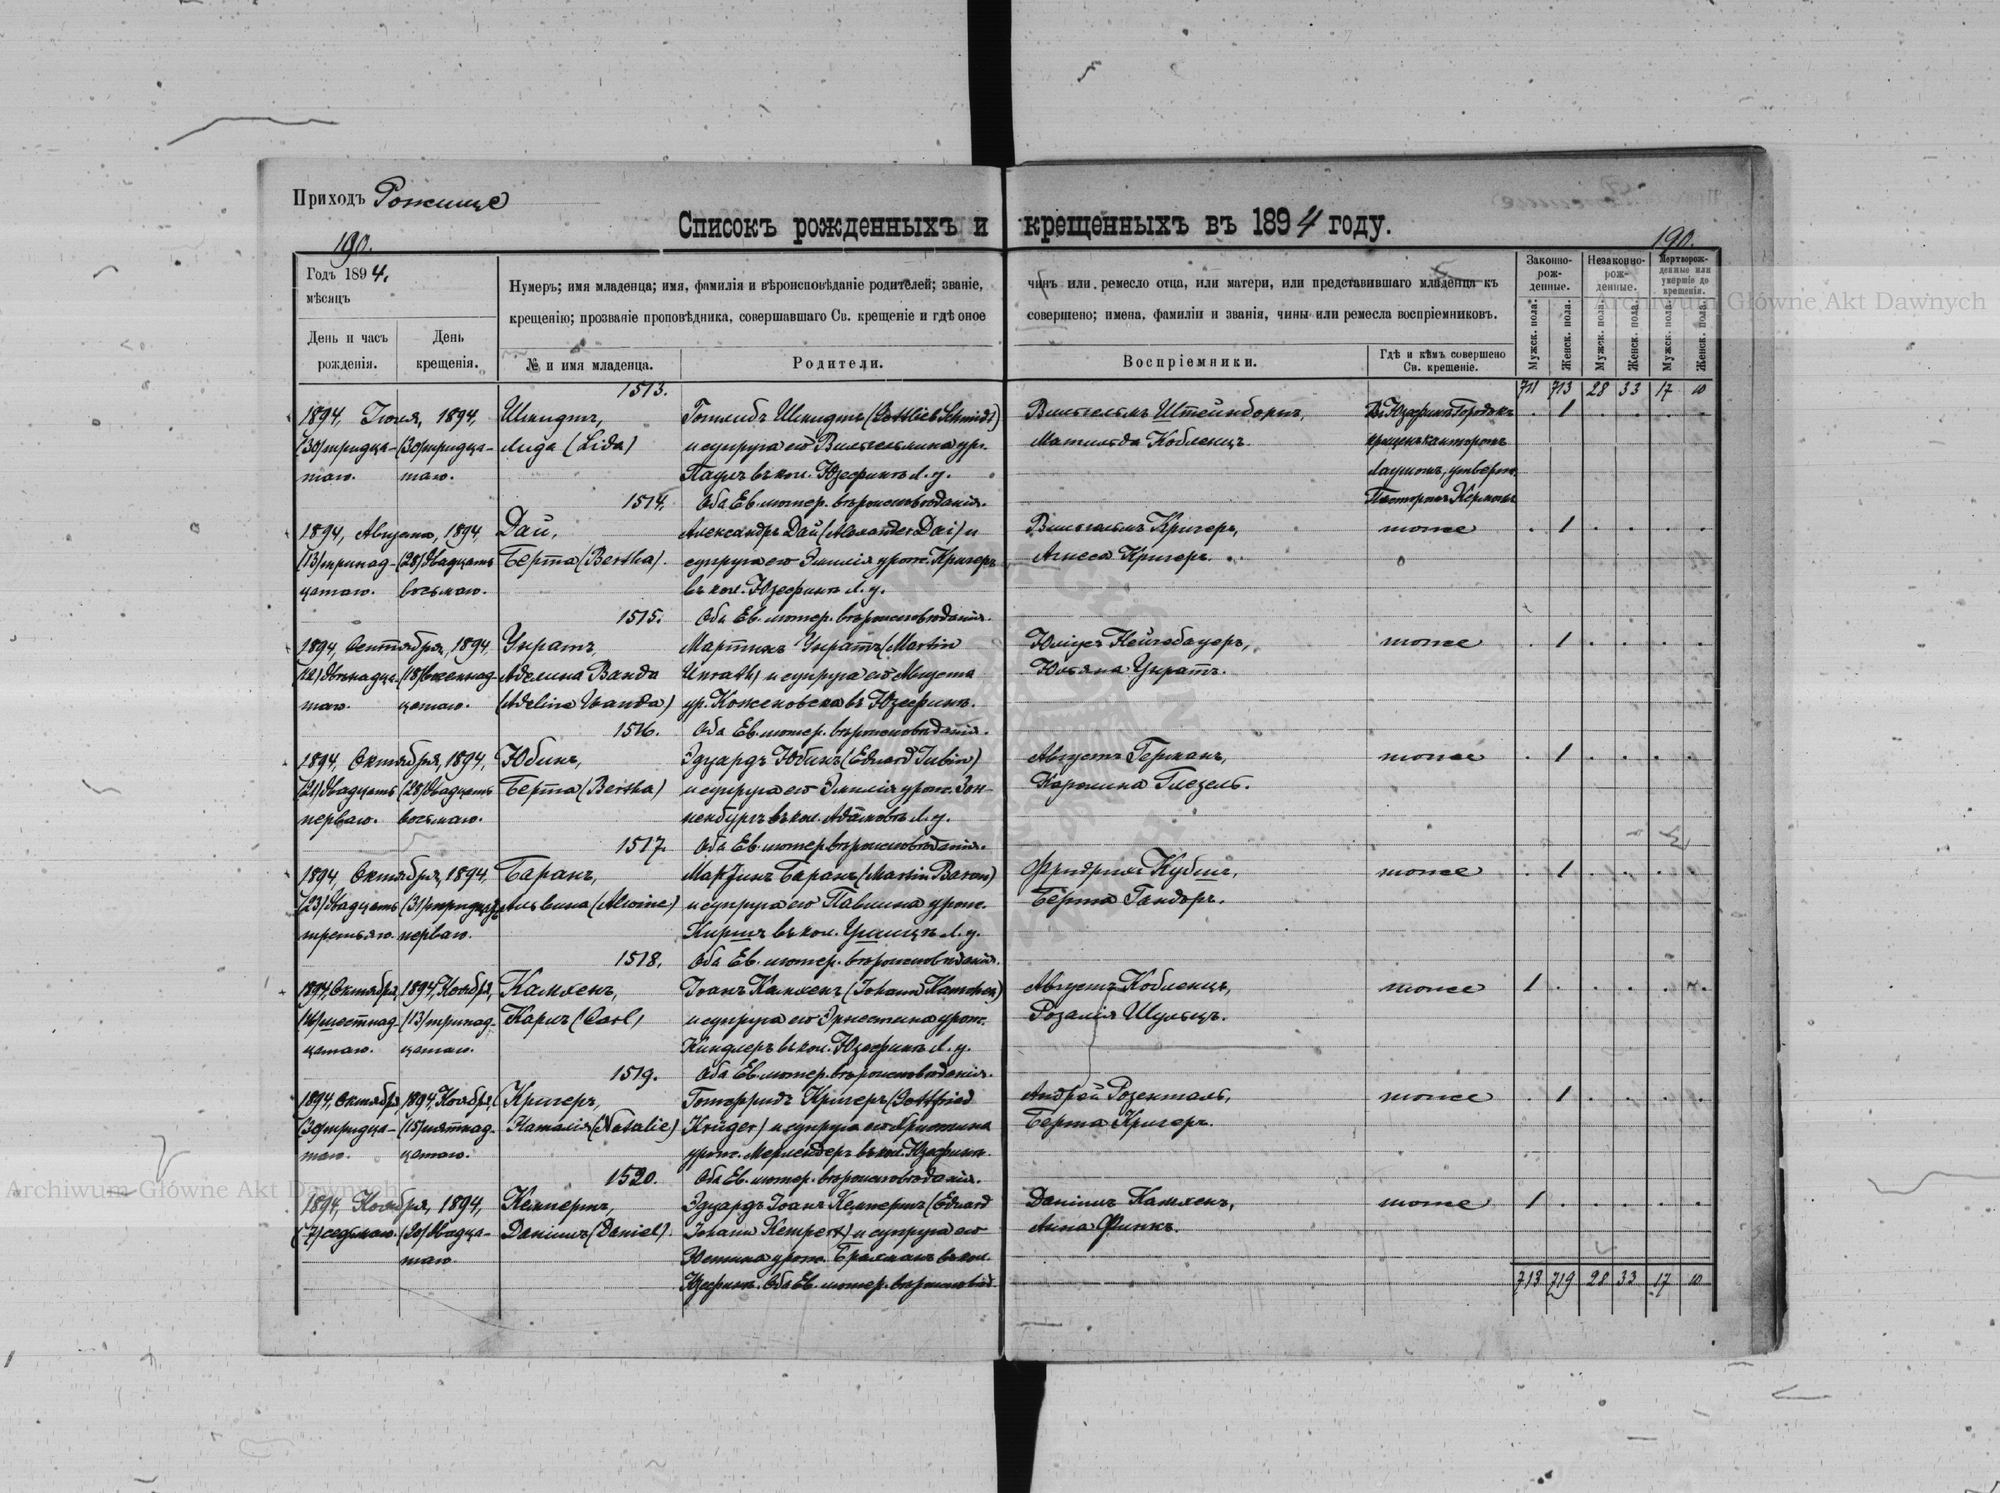 Приходъ Рожище
Списокъ рожденныхъ и крещенныхъ въ 1894 году.
190.
190.
Годъ 1894.
мѣсяцъ
День и часъ рожденія.
День крещенія.
Нумеръ; имя младенца; имя, фамилія и вѣроисповѣданіе родителей; званіе, чинъ или ремесло отца, или матери, или представившаго младенца къ
крещенію; прозваніе проповѣдника, совершавшаго Св. крещеніе и гдѣ оное совершено; имена, фамиліи и званія, чины или ремесла воспріемниковъ.
№ и имя младенца.
Родители.
Воспріемники.
Гдѣ и кѣмъ совершено Св. крещеніе.
Законно-рож-денные.
Незаконно-рож-денные.
Мертворож-денные или умершіе до крещенія.
Мужск. пола.
Женск. пола.
Мужск. пола.
Женск. пола.
Мужск. пола.
Женск. пола.
711 713 28 33 17 10
1513.
1894, Іюля, 1894, Шмидтъ, Готлибъ Шмидтъ (Gottlieb Schmidt) Вильгельмъ Штейнборнъ, Въ Юзефинѣ Городокъ . 1 . . . .
(30) тридца- (30) тридца- Лида (Lida) и супруга его Вильгельмина ур. Матильда Кобленцъ. крещенъ канторомъ
таго. таго. Паучъ въ кол. Юзефинъ Л. у.
1514. Оба Ев. лютер. вѣроисповѣданія. Пасторомъ Керномъ
1894, Августа, 1894, Дай, Александръ Дай (Alexander Dai) и Вильгельмъ Кригеръ, тоже . 1 . . . .
(13) тринад- (28) двадцать Берта (Bertha). супруга его Эмилія урож. Кригеръ Агнеса Кригеръ.
цатаго. восьмаго. въ кол. Юзефинъ Л. у.
1515. Оба Ев. лютер. вѣроисповѣданія.
1894, Сентября, 1894, Унратъ, Мартинъ Унратъ (Martin Юліусъ Нейгебауеръ, тоже . 1 . . . .
(12) двѣнадца- (18) восемнад- Аделина Ванда Unrath) и супруга его Августа Юльяна Унратъ.
таго. цатаго. (Adelina Wanda) ур. Коженовска въ Юзефинъ.
1516. Оба Ев. лютер. вѣроисповѣданія.
1894, Октября, 1894, Юбинъ, Эдуардъ Юбинъ (Eduard Jubin) Августъ Германъ, тоже . 1 . . . .
(21) двадцать (28) двадцать Берта (Bertha) и супруга его Эмилія урож. Зон- Каролина Глезель.
перваго. восьмаго. ненбургъ въ кол. Адамовъ Л. у.
1517. Оба Ев. лютер. вѣроисповѣданія.
1894, Октября, 1894, Баранъ, Мартинъ Баранъ (Martin Baran) Фридрихъ Кубшъ, тоже . 1 . . . .
(23) двадцать (31) тридцать Альвина (Alwine) и супруга его Павлина урож. Берта Гандоръ.
третьяго. перваго. Киршъ въ кол. Л. у.
1518. Оба Ев. лютер. вѣроисповѣданія.
1894, Октября, 1894, Ноября, Камхенъ, Іоанъ Камхенъ (Johann Kamchen) Августъ Кобленцъ, тоже 1 . . . . .
(16) шестнад- (13) тринад- Карлъ (Carl) и супруга его Эрнестина урож. Розалія Шульцъ.
цатаго. цатаго. Киндлеръ въ кол. Юзефинъ Л. у.
1519. Оба Ев. лютер. вѣроисповѣданія.
1894, Октября, 1894, Ноября, Кригеръ, Готфридъ Кригеръ (Gottfried Андрей Розенталь, тоже . 1 . . . .
(30) тридца- (15) пятнад- Наталія (Natalie) Krüger) и супруга его Христина Берта Кригеръ.
таго. цатаго. урож. въ кол. Юзефинъ.
1520. Оба Ев. лютер. вѣроисповѣданія.
1894, Ноября, 1894, Кемпертъ, Эдуардъ Іоанъ Кемпертъ (Eduard Даніилъ Камхенъ, тоже 1 . . . . .
(7) седьмаго. (20) двадца- Даніилъ (Daniel). Johann Kempert) и супруга его Анна Финкъ.
таго Юстина урож. Брахманъ въ кол.
Юзефинъ. Оба Ев. лютер. вѣроисповѣд.
713 719 28 33 17 10
Archiwum Główne Akt Dawnych
Archiwum Główne Akt Dawnych